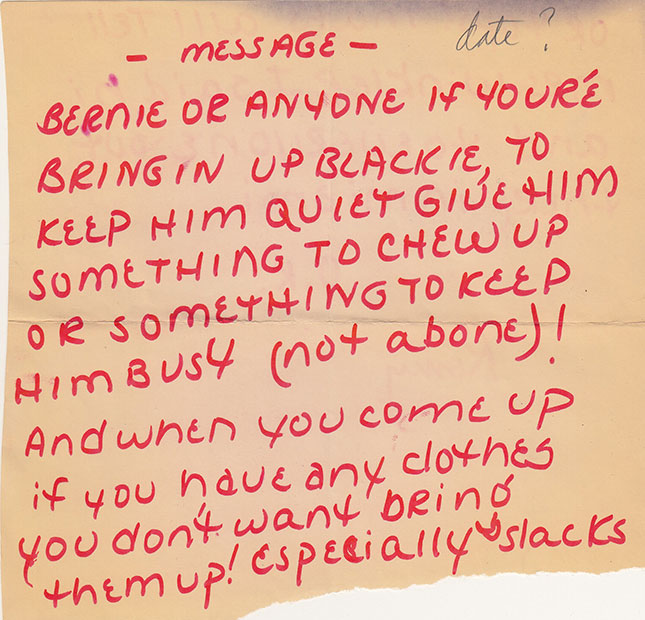 date ?
- MESSAGE -
BERNIE OR ANYONE IF YOU'RE
BRINGIN UP BLACKIE, TO
KEEP HIM QUIET GIVE HIM
SOMETHING TO CHEW UP
OR SOMETHING TO KEEP
HIM BUSY (not abone)!
And when you come up
if you have any clothes
you don't want bring
them up! especially slacks